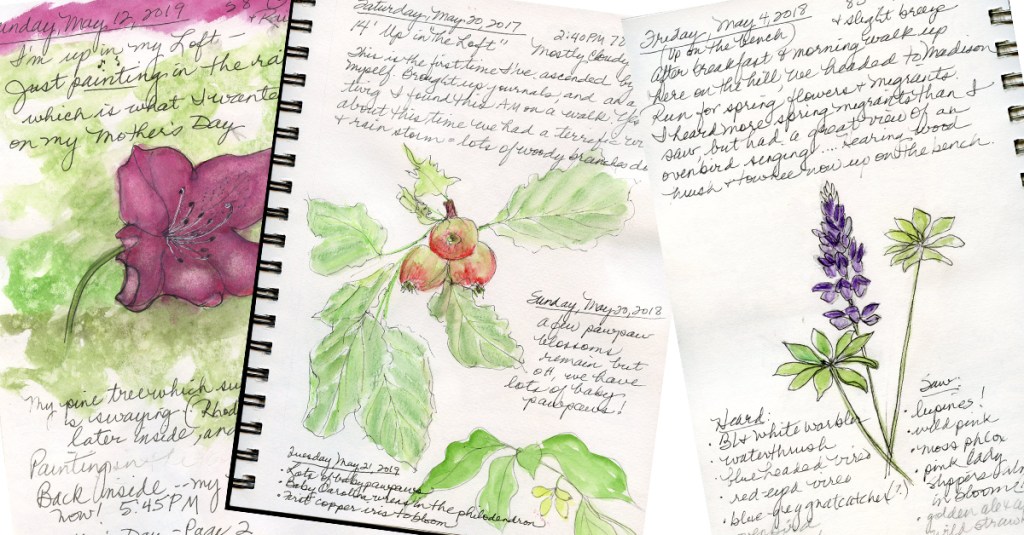 Sunday, May 12, 2019
I'm up in my Loft –
Just painting in the rain
which is what I wanted
on my Mother's Day
My pine tree which
is swaying (Rhod
later inside, and
Painting
Back Inside -- my
now! 5:45 PM
Day - Page 2
Saturday, May 20, 2017
14' Up in the Loft" 2:40 PM 72
Mostly Cloudy
This is the first time I've ascended by
myself. Brought up journals, and an a
twig I found this AM on a walk.
about this time we had a terrific
& rain storm - lots of woody branches do
Sunday, May 20, 2018
a few pawpaw
blossoms
remain, but
oh, we have
lots of baby
pawpaws!
Tuesday May 21 2019
• Lots of baby pawpaws
• Baby Carolina wrens in the philodendron
• First copper iris to bloom
Friday, May 4, 2018
& slight breeze
(Up on the bench)
After breakfast & morning walk up
here on the hill, we headed to Madison
Run for spring flowers & migrants.
I heard more spring migrants than I
saw, but had a great view of an
ovenbird singing! ... Hearing wood
thrush & towhee now up on the bench.
Heard:
• Bl & white warbler
• waterthrush
• blue headed vireo
• red-eyed vireo
• blue-grey gnatcatcher (?)
Saw:
• lupines!
• wild pink
• moss phlox
• pink lady
slippers
in bloom
• golden alexa
• wild strawb